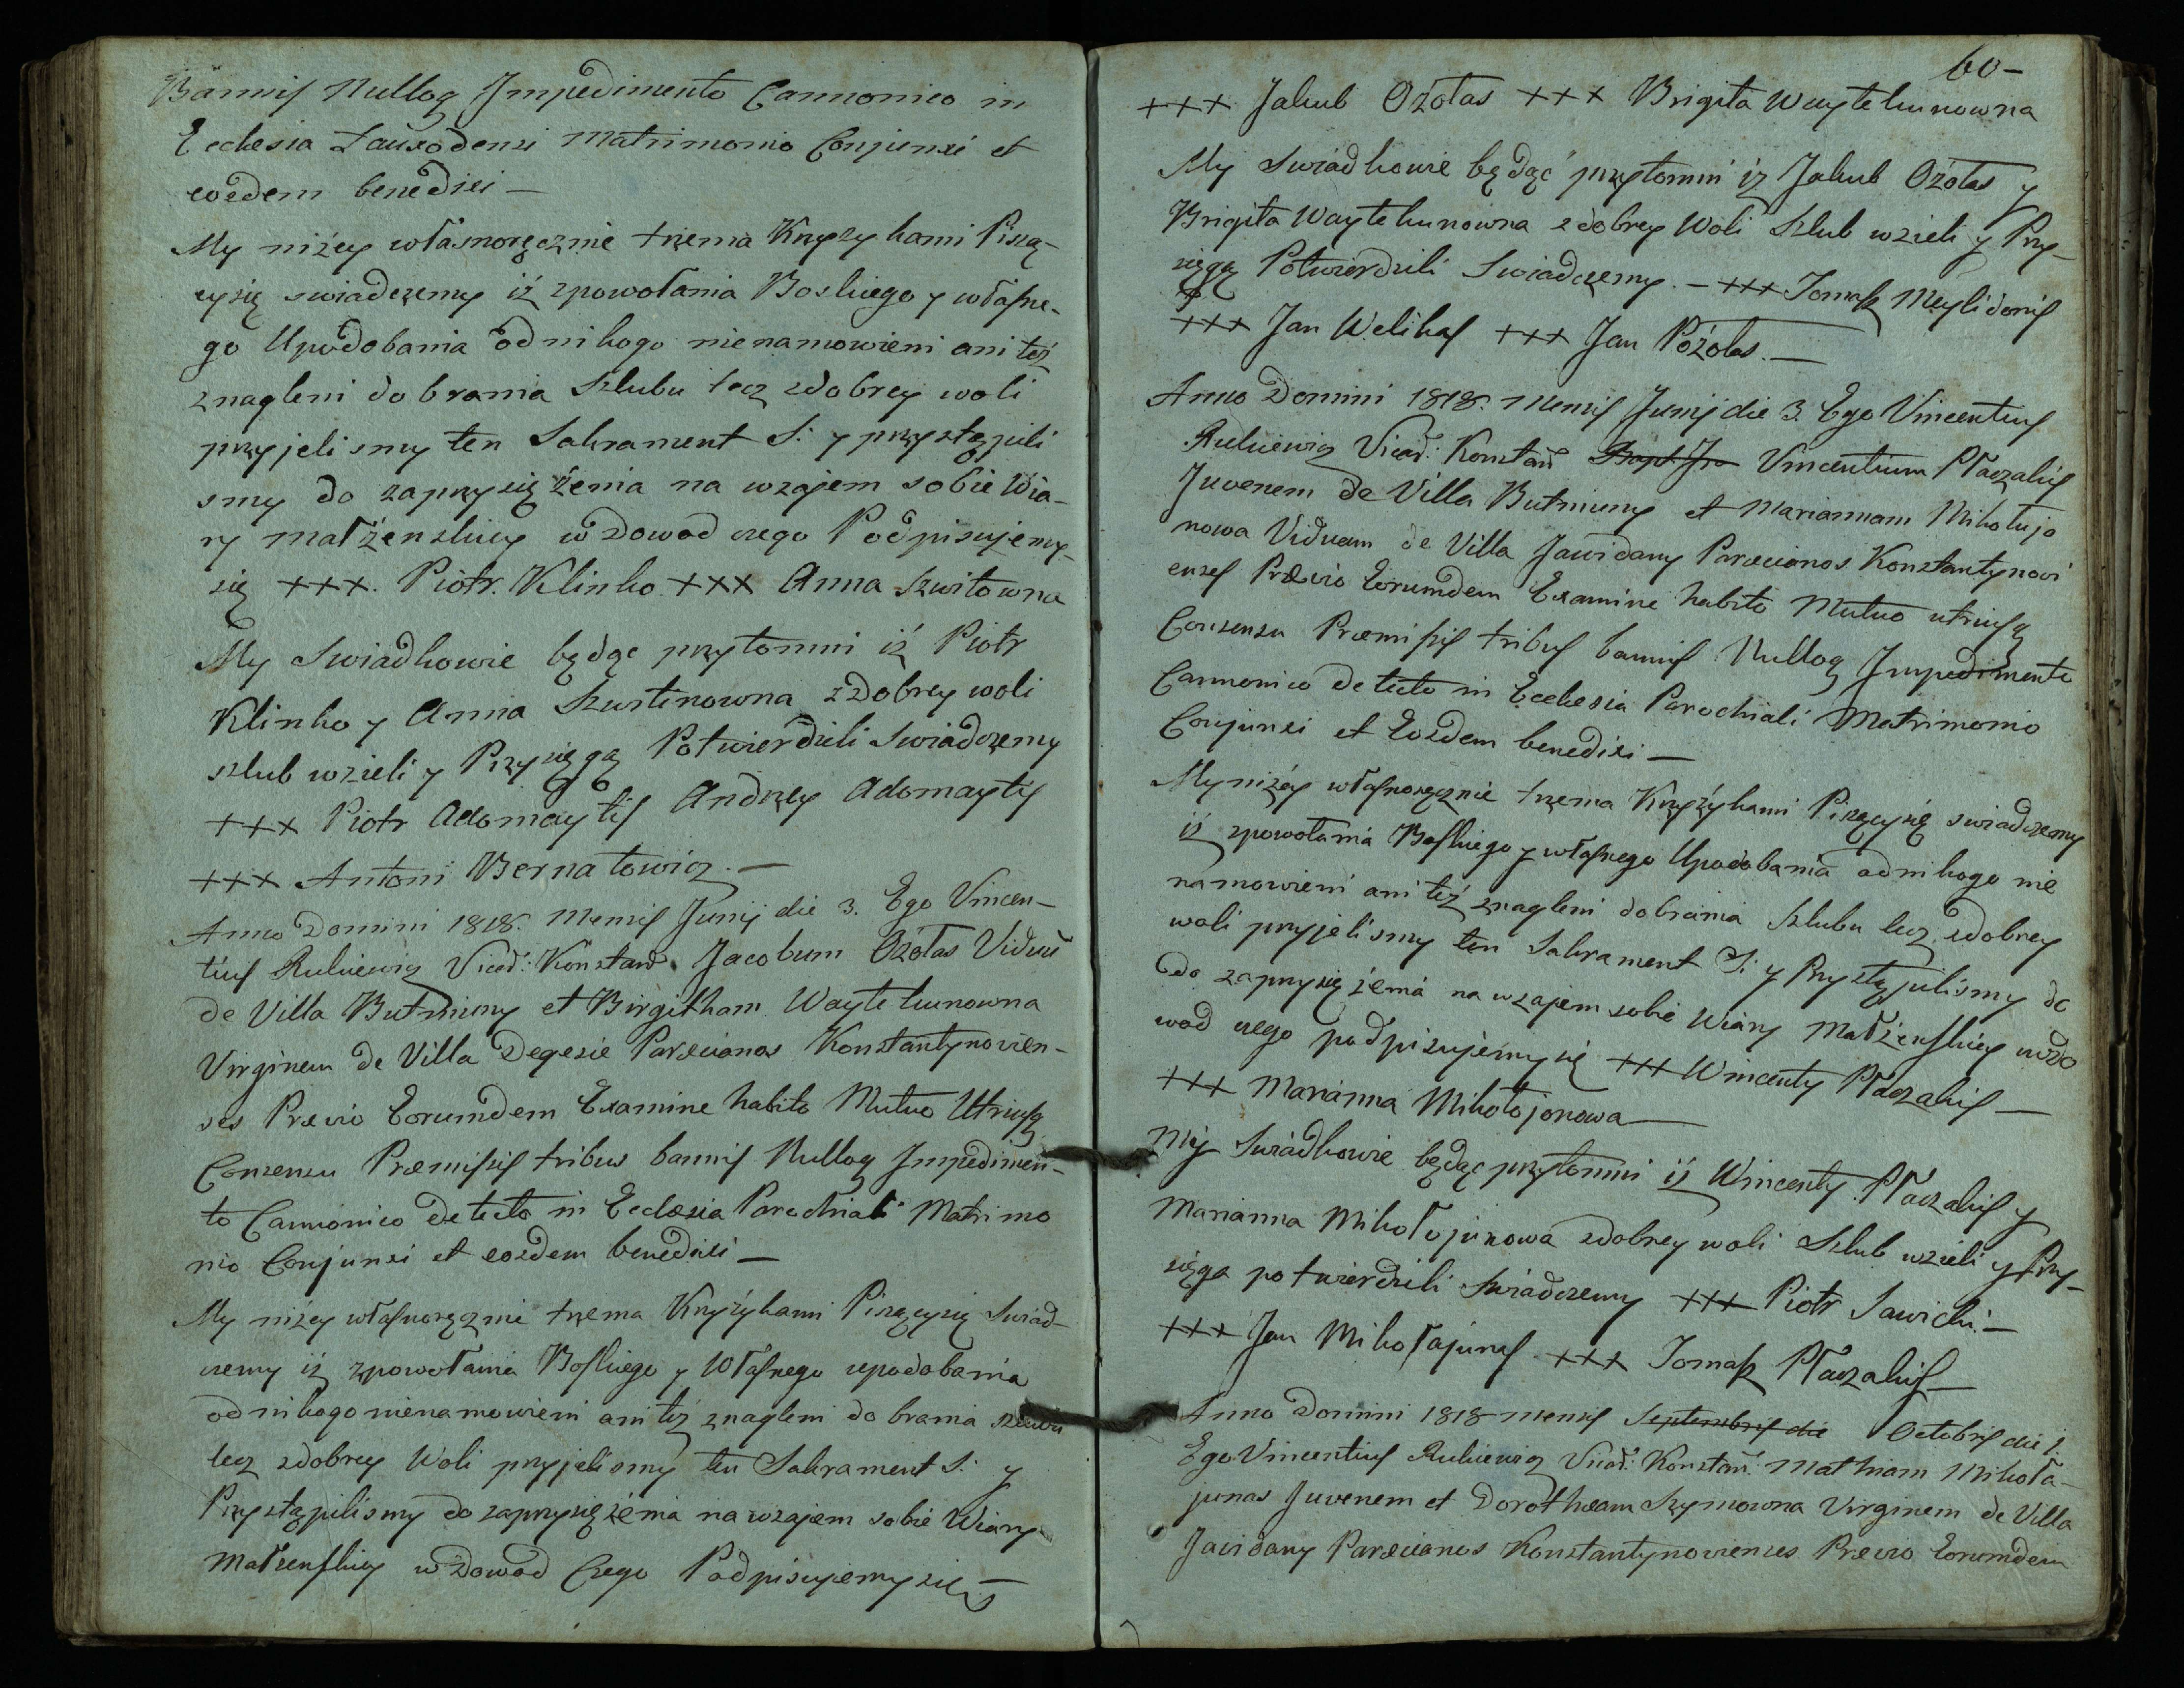 Bannis Nulloq Impedimento Cannonico in
Ecclesia Łauxodensi Matrimonio Conjunxi et
eosdem benedixi —
My niżey własnoręcznie trzema Krzyzykami Piszą-
cysię swiadczemy iż zpowołania Boskiego y własne-
go Upodobania odnikogo nienamowieni ani też
znagleni do brania Szlubu lecz zdobrey woli
przyjelismy ten Sakrament S: y przystąpili
smy do zaprzysiężenia na wzajem sobie Wia-
ry małżenskiey w dowod czego Podpisujemy
się +++. Piotr. Klinko +++ Anna Szwitowna
My Swiadkowie będąc przytomni iż Piotr
Klinko y Anna Szustinowna z dobrey woli
szlub wzieli y Przysięgą Potwierdzili Swiadczemy
+++ Piotr Adomaytis Andrzey Adomaytis
+++ Antoni Bernatowicz. —
Anno Domini 1818. Mensis Junij die 3. Ego Vincen-
tius Rukiewicz Vicad: Konstań Jacobum Ożołas Viduū
de Villa Butniuny et Birgitham Waytekunowna
Virginem de Villa Degesie Paræcianos Konstantynovien-
ses Prævio Eorumdem Examine habito Mutuo Utriusq
Consensu Præmissis tribus bannis Nulloq Impedimen-
to Cannonico detecto in Ecclesia Parochiali Matrimo
nio Conjunxi et eosdem benedixi —
My niżey własnoręcznie trzema Krzyżykami Piszącysię Swiad-
czemy iż zpowołania Boskiego y Własnego upodobania
odnikogo nienamowieni ani też znagleni do brania szlubu
lecz zdobrey Woli przyjelismy ten Sakrament S: y
Przystąpilismy do zaprzysiężenia nawzajem sobie Wiary
Małżenskiey w Dowod Czego Podpisujemy się —
60 —
+++ Jakub Ożołas +++ Brigita Waytekunowna
My Swiadkowie będąc przytomni iż Jakub Ożołas y
Brigita Waytekunowna z dobrey Woli Szlub wzieli y Przy-
sięgą Potwierdzili Swiadczemy. — +++ Tomasz Meylidonis
+++ Jan Welikas +++ Jan Pożołas. —
Anno Domini 1818. Mensis Junij die 3. Ego Vincentius
Rukiewicz Vicad: Konstań Vincentium Płaczakis
Juvenem de Villa Butniuny et Mariannam Mikołujo
nowa Viduam de Villa Jawidany Paræcianos Konstantynovi
enses Prævio Eorumdem Examine habito Mutuo utriusq
Consensu Præmissis tribus bannis Nulloq Impedimento
Cannonico detecto in Ecclesia Parochiali Matrimonio
Conjunxi et Eosdem benedixi —
My niżey własnoręcznie trzema Krzyżykami Piszącysię swiadczemy
iż zpowołania Boskiego y własnego Upodobania odnikogo nie
namowieni ani też znagleni dobrania Szlubu lecz zdobrey
woli przyjelismy ten Sakrament S: y Przystąpilismy do
do zaprzysiężenia na wzajem sobie Wiary Małżenskiey wdo
wod czego podpisujemy się +++ Wincenty Płaczakis —
+++ Marianna Mikołojonowa —
My Swiadkowie będąc przytomni iż Wincenty Płaczakis y
Marianna Mikołojunowa zdobrey woli Szlub wzieli y Przy-
sięga potwierdzili Swiadczemy +++ Piotr Sawicki —
+++ Jan Mikołajunas +++ Tomasz Płaczakis —
Anno Domini 1818 mensis Septembris die Octobris die 1.
Ego Vincentius Rukiewicz Vicad: Konstań: Mathiam Mikoła-
junas Juvenem et Dorotheam Szymowna Virginem de Villa
Jawidany Paræcianos Konstantynovienses Prævio Eorumdem